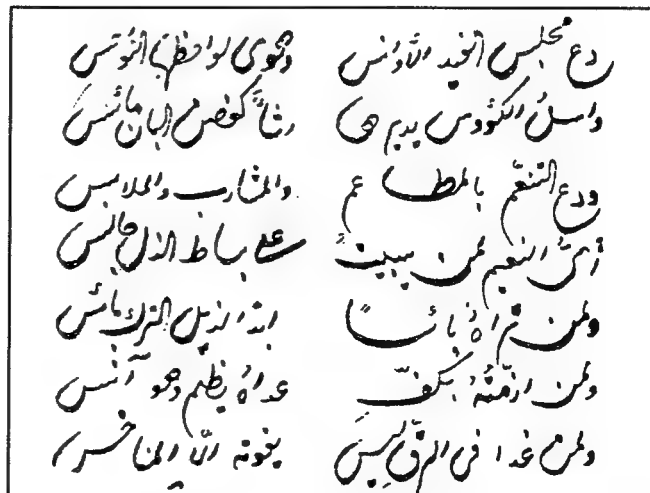 دع مجلس الغيد الأوانس وهوى لواحظها
واسلُ الكؤوس يديرها رشأً كغصن البان مائس
ودع التنعّم بالمطاعم والمشارب والملابس
أيّ النعيم لمن يبيتُ على بساط الذل جالس
ولمن تراهُ بائسًا ابدًا لذيل الترك بائس
ولمن ازمّتُهُ بكفّ عداهُ يظلم وهو آنس
ولمن غدا في الرقّ ليس يفوته الّا المناخس